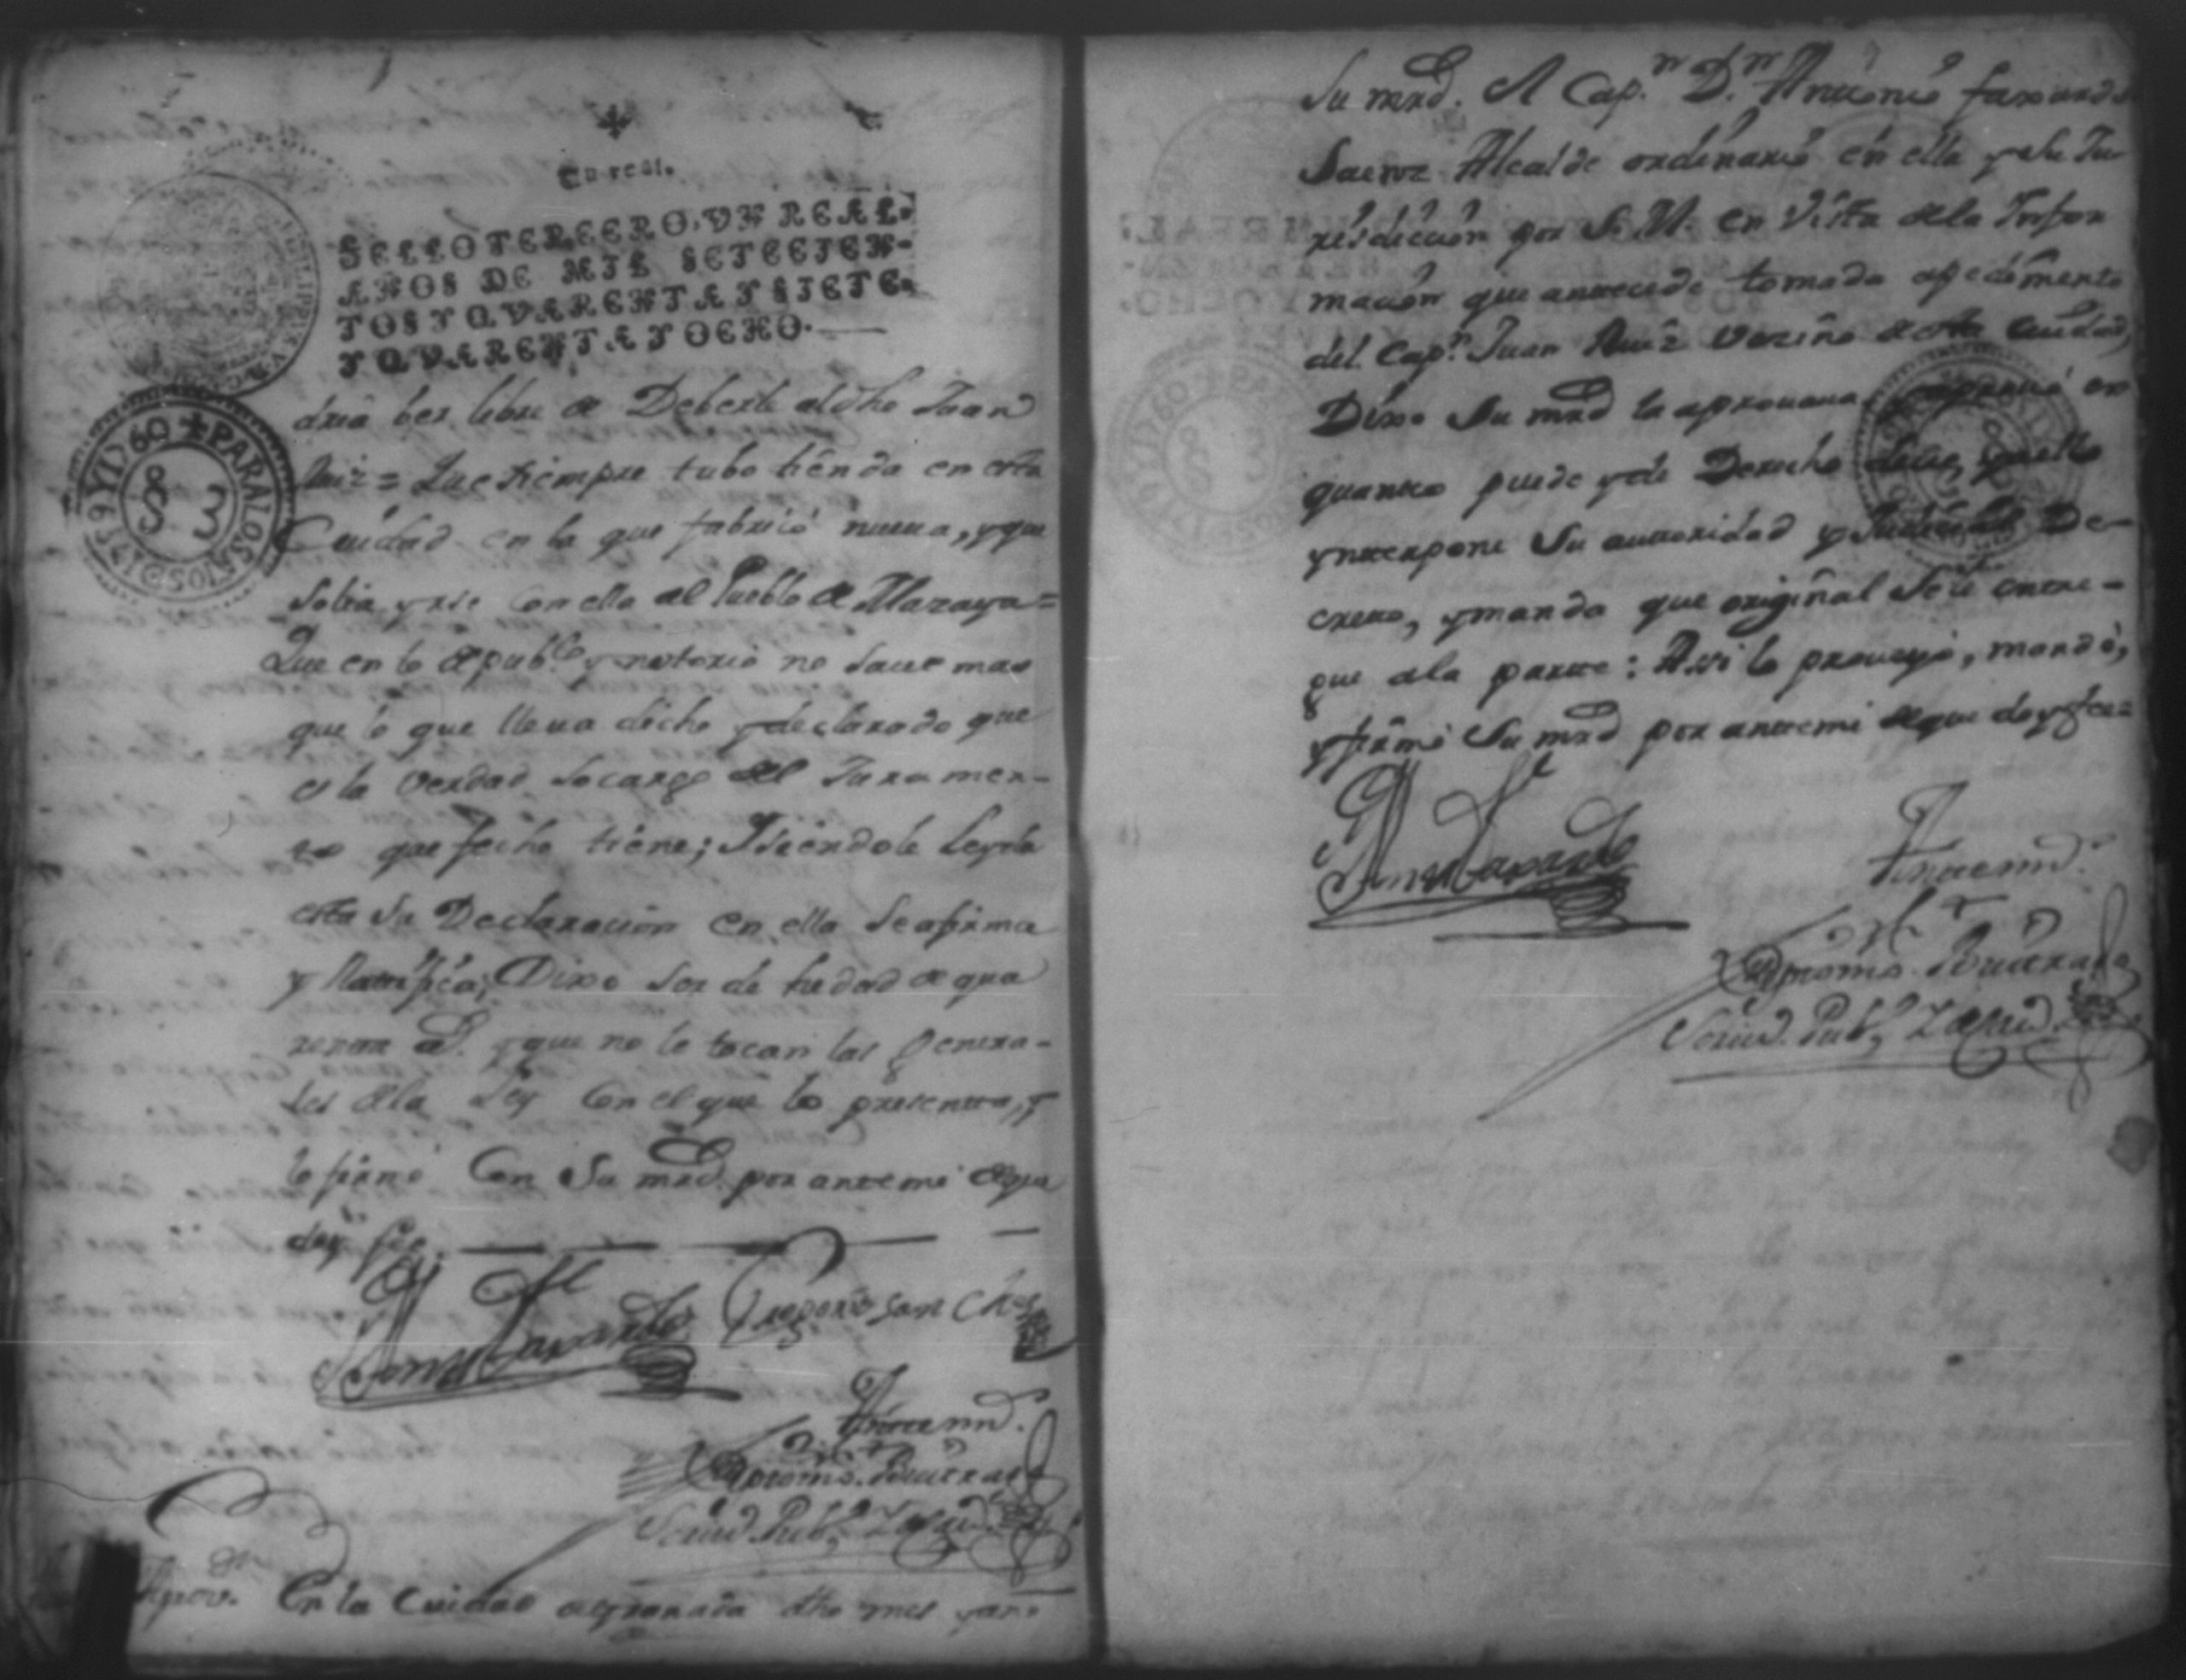 Un real.
SELLO TERCERO, UN REAL,
AÑOS DE MIL SETECIEN-
TOS Y QUARENTA Y SIETE,
Y QUARENTA Y OCHO.
PARA LOS AÑOS @ 1759 Y 1760
S 3
dria ser libre de Deberle al dho Juan
Ruiz = Que siempre tubo tienda en esta
Ciudad en la que fabricó nueua, y que
Solia yrse con ella al Pueblo de Mazaya =
Que en lo de pub.co y notorio no saue mas
que lo que lleua dicho y declarado que
es la verdad so cargo del Juramen-
to que fecho tiene; I siendole leyda
esta su Declaracion en ella se afirma
y Ratifica; Dixo ser de hedad de qua
renta a.s y que no le tocan las Genera-
les de la Ley con el que lo presenta, y
lo firmó Con Su mrd por ante mi de que
doy fee.
Gregorio San Ches
Ante mi.
Scriu.o Pub.co
Aprov.on En la Ciudad de granada dho mes y año
Su mrd. El Cap.n D.n Antonio faxardo
Saenz Alcalde ordinario en ella y su Ju
risdiccion por S. M. en Vista de la Infor
macion que antecede tomada a pedimento
del Cap.n Juan Ruiz Vezino de esta Ciudad,
Dixo Su mrd la aprouaua, y aprouó en
quanto puede y de Derecho deue, y a ello
ynterpone Su autoridad y Judicial De-
creto, y manda que original se le entre-
gue a la parte: Assi lo proueyó, mandó,
y firmó Su mrd por ante mi de que doy fee =
Ante mi.
Scriu.o Pub.co